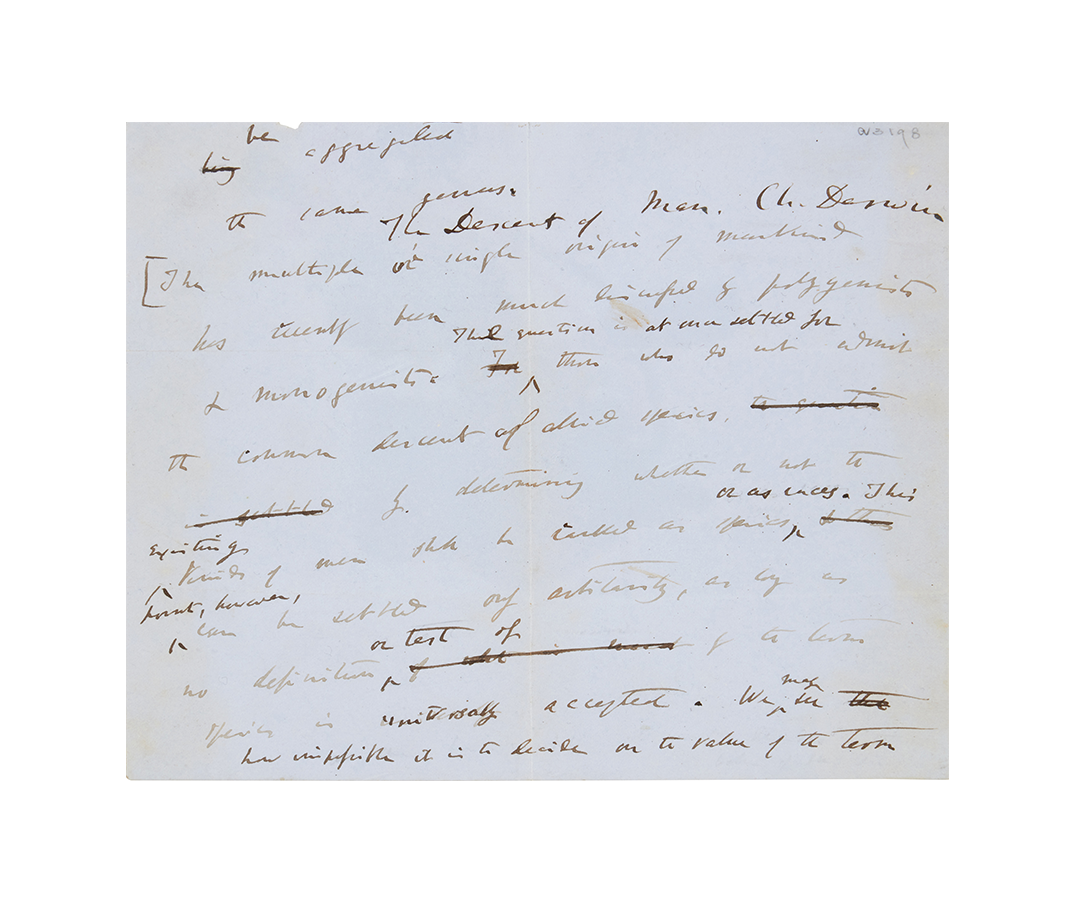 be
being aggregated
the same genus.
The Descent of Man. Ch. Darwin
[The multiple or single origin of mankind
has recently been much discussed by polygenists
That question is at once settled for
& monogenists. For those who do not admit
the common descent of allied species. the question
is settled by determining whether or not the
or as races. This
existing
kinds of men shd be ranked as species, but this
point, however,
can be settled only arbitrarily, as long as
or test of
no definition of what is meant by the term
species is universally accepted. We may see the
how impossible it is to decide on the value of the term